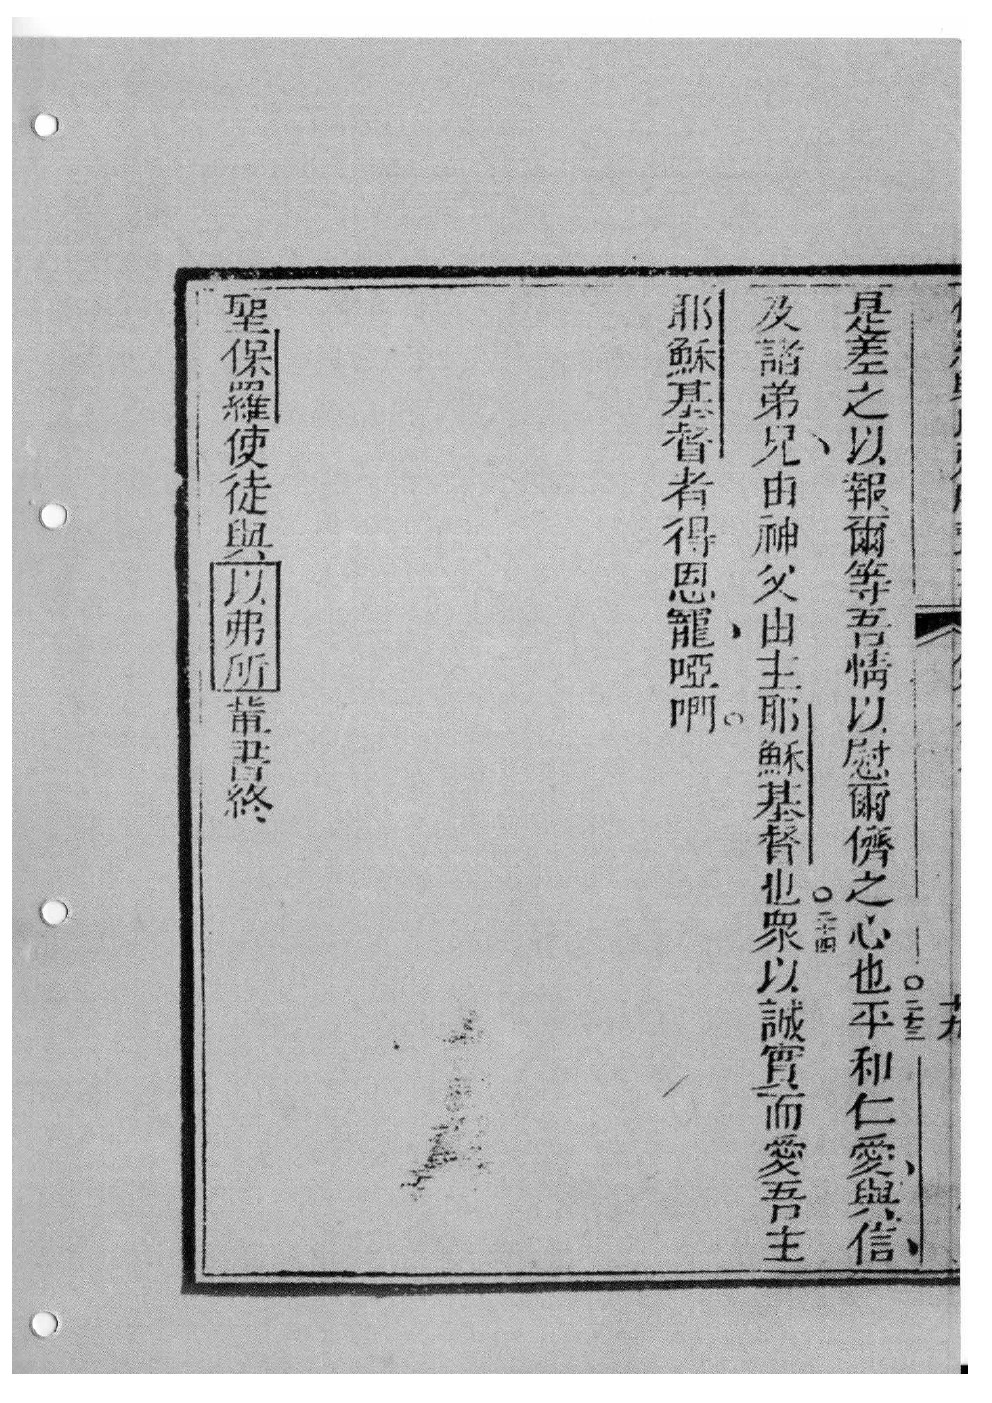 是差之以報爾等吾情以慰爾儕之心也。二十三平和仁愛、與信、
及諸弟兄、由神父由主耶穌基督也。二十四衆以誠實而愛吾主
耶穌基督者得恩寵、啞啊。
聖保羅使徒與以弗所軰書終